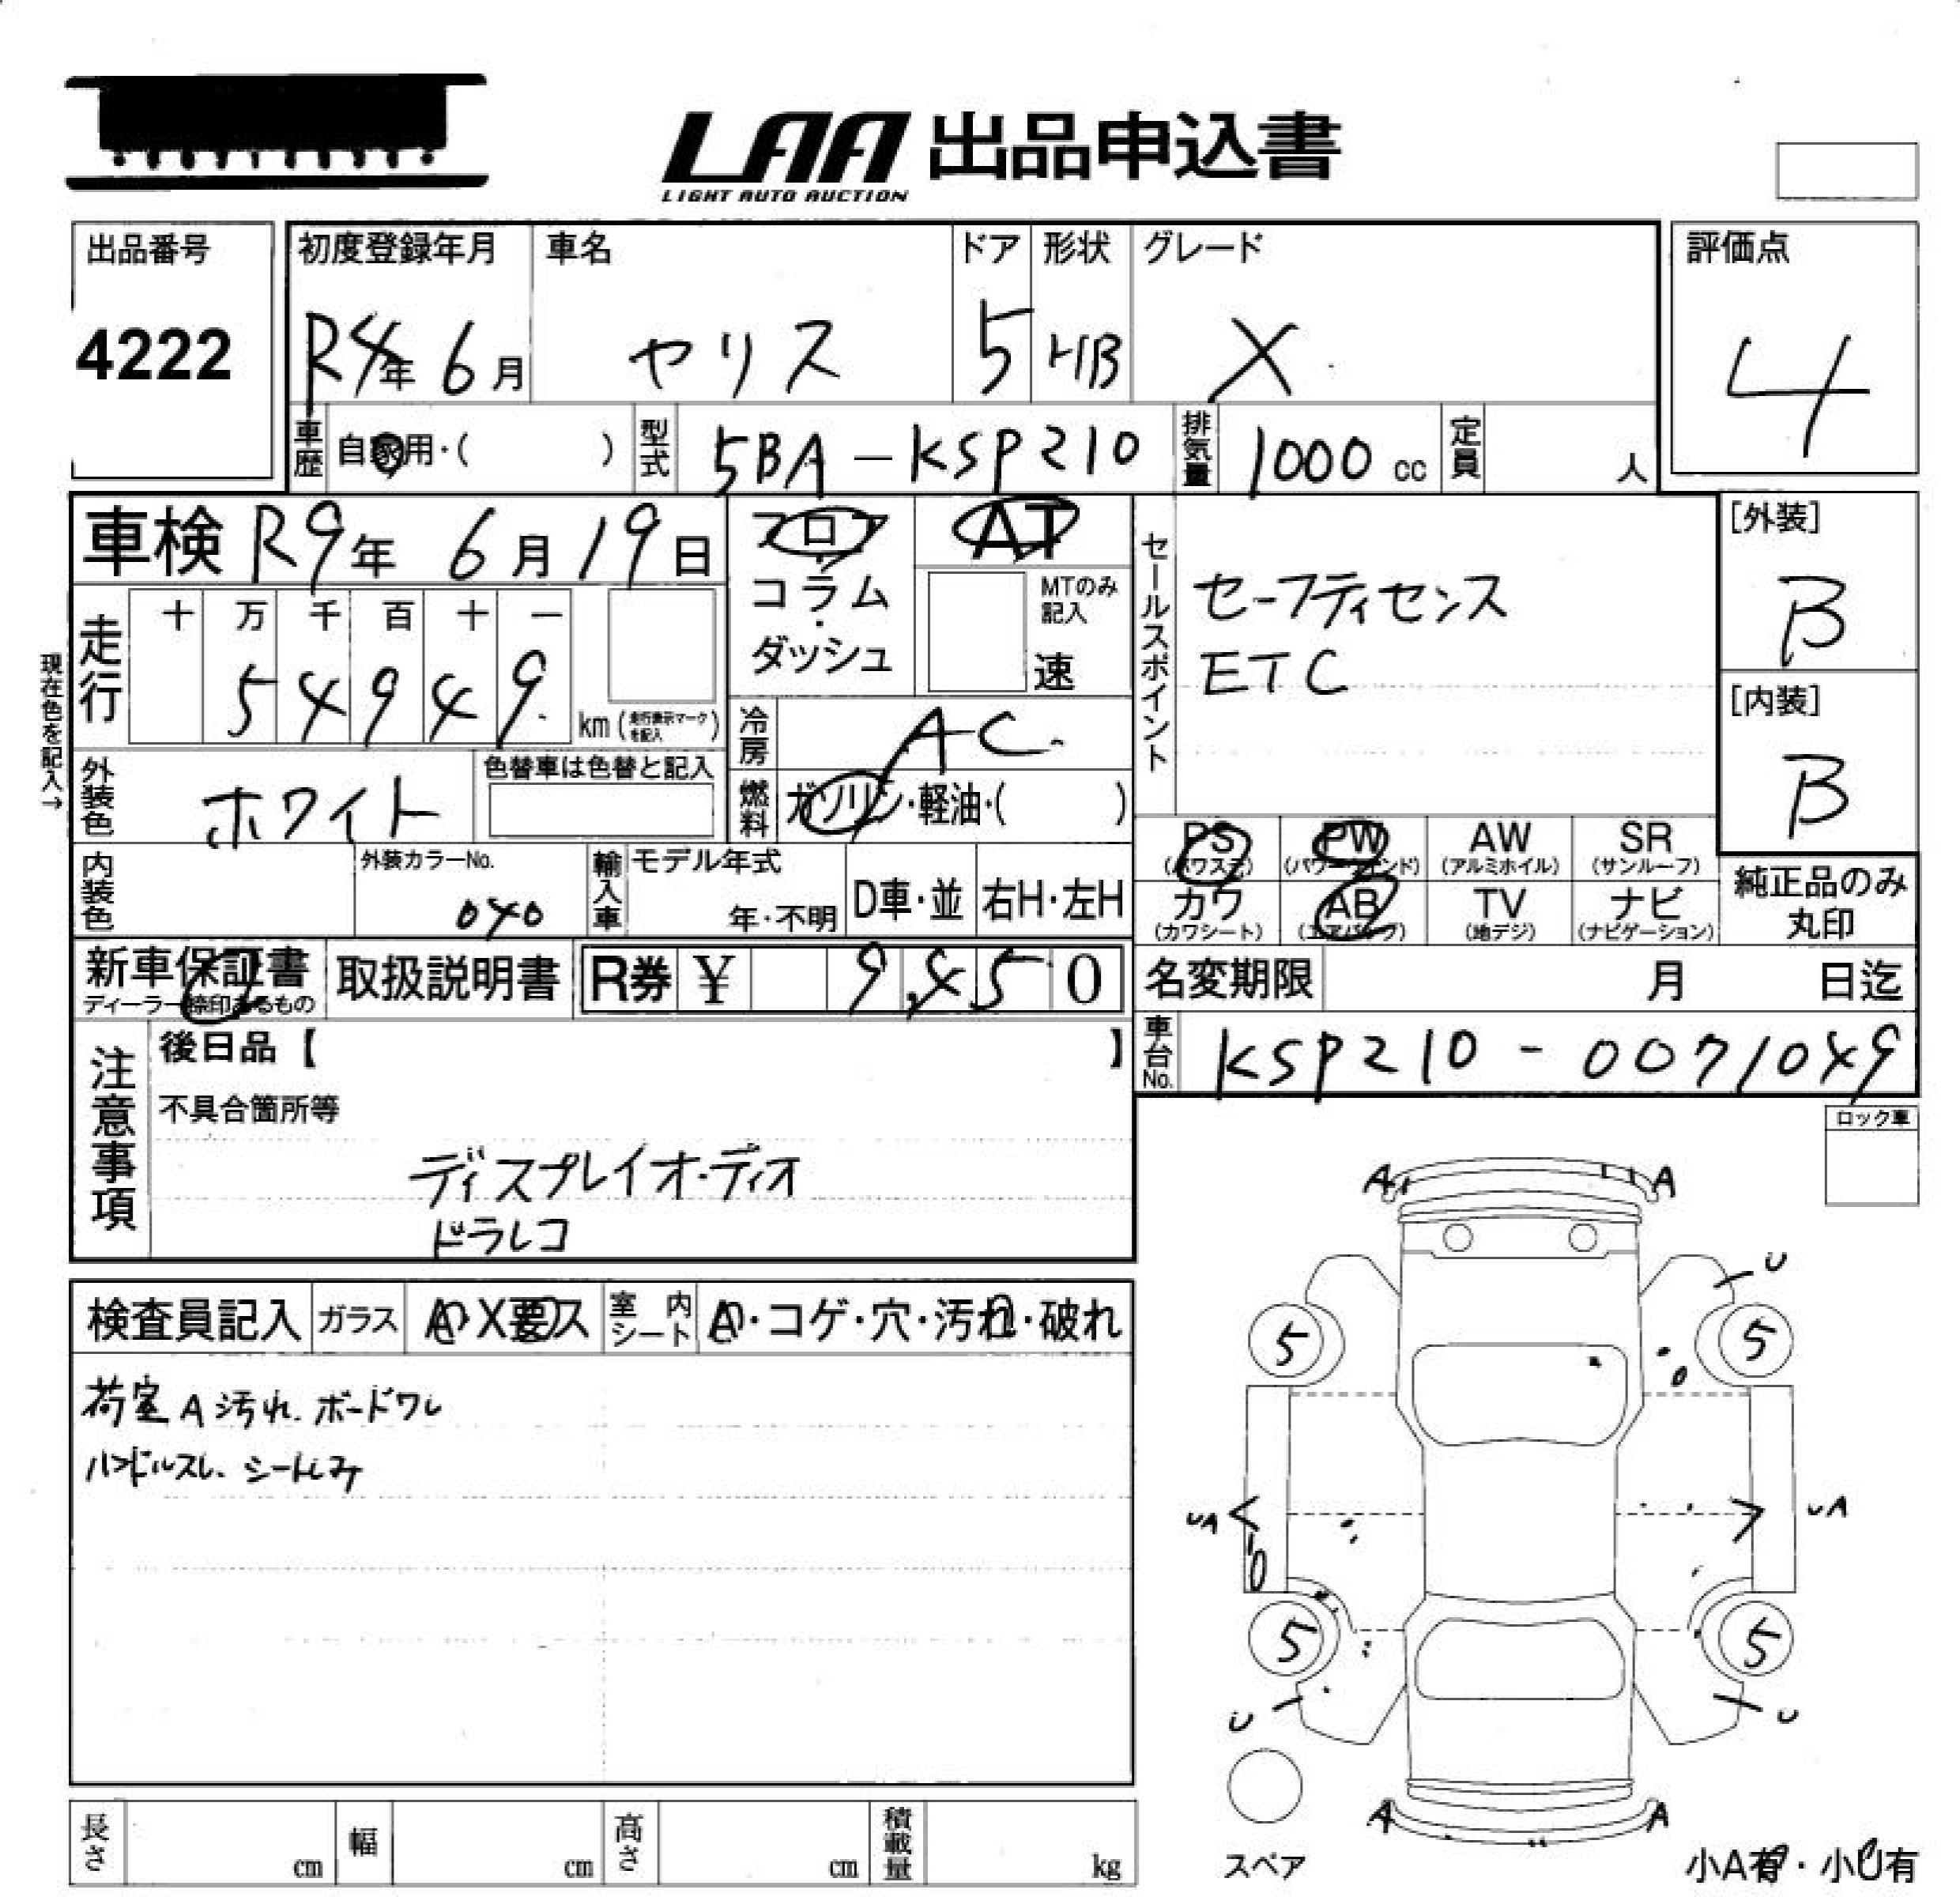 LAA 出品申込書
LIGHT AUTO AUCTION
出品番号
4222
初度登録年月
R4年 6月
車名
ヤリス
ドア
5
形状
HB
グレード
X
評価点
4
車歴 自家用・( )
型式 5BA-KSP210
排気量 1000 cc
定員 人
車検 R9年 6月 19日
フロア・コラム・ダッシュ
AT
MTのみ記入
速
セールスポイント
セーフティセンス
ETC
[外装]
B
[内装]
B
現在色を記入→
走行
十 万 千 百 十 一
5 4 9 4 9
km (走行表示マークを記入)
冷房 AC
燃料 ガソリン・軽油・( )
外装色 ホワイト
色替車は色替と記入
内装色
外装カラーNo.
040
輸入車 モデル年式
年・不明
D車・並
右H・左H
PS (パワステ)
PW (パワーウインド)
AW (アルミホイル)
SR (サンルーフ)
カワ (カワシート)
AB (エアバック)
TV (地デジ)
ナビ (ナビゲーション)
純正品のみ丸印
新車保証書
ディーラー捺印あるもの
取扱説明書
R券 ¥ 9,450
名変期限 月 日迄
車台No. KSP210-0071049
注意事項
後日品【 】
不具合箇所等
ディスプレイオーディオ
ドラレコ
ロック車
検査員記入
ガラス A・X要ス
室内シート A・コゲ・穴・汚れ・破れ
荷室A汚れ.ボードワレ
ハンドルスレ.シートシミ
A A
U
5 5
UA UA
5 5
U U
A A
スペア
小A有・小U有
長さ cm
幅 cm
高さ cm
積載量 kg